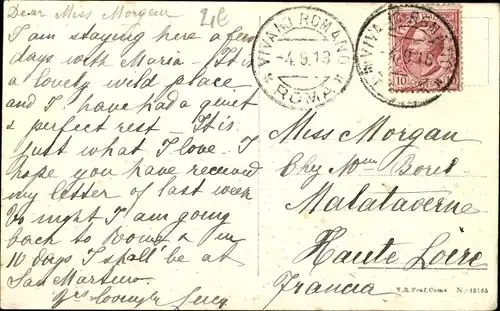 Dear Miss Morgan
I am staying here a few
days with Maria - It is
a lovely wild place
and I have had a quiet
& perfect rest - It is
just what I love. I
hope you have received
my letter of last week
To night I am going
back to Rome & in
10 days I shall be at
San Martino.
yrs lovingly Lucy.
VIVARO ROMANO
-4.9.13
* ROMA *
10
Miss Morgan
Chez Mme Borel
Malataverne
Haute Loire
Francia
V.R. Prof. Como N.